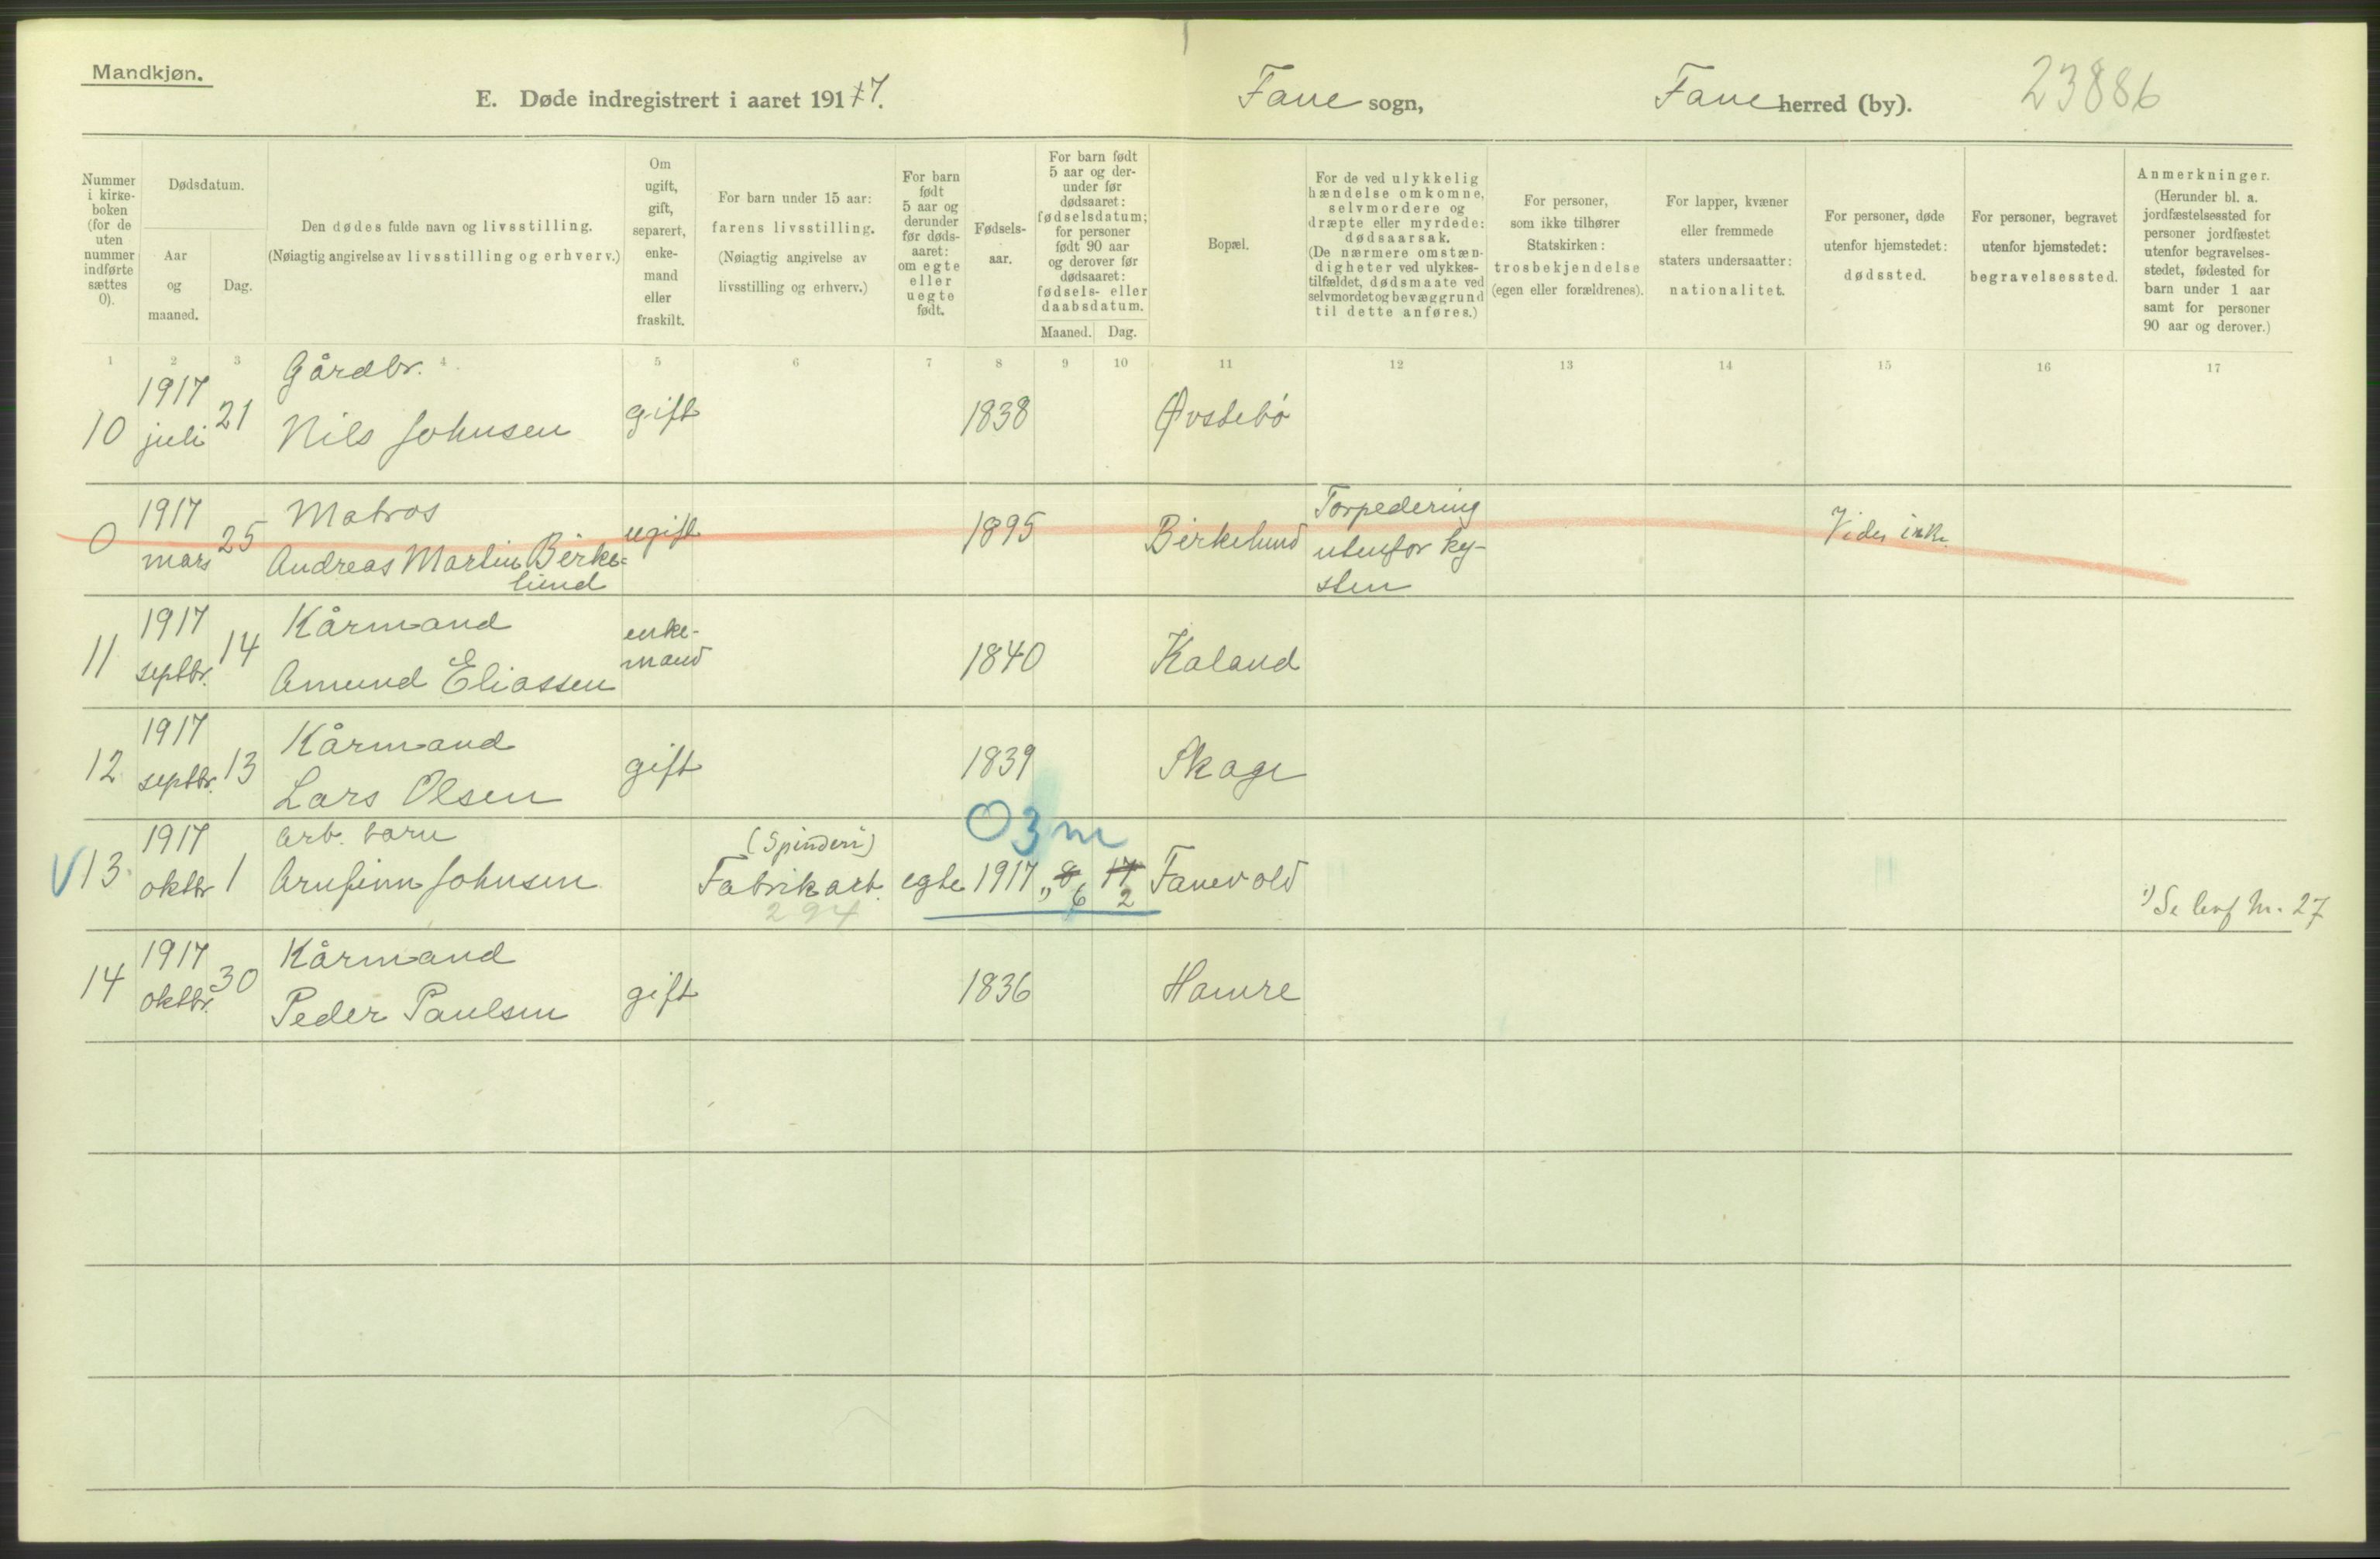 Mandkjøn.
E. Døde indregistrert i aaret 1917.
Fane sogn,
Fane herred (by).
23886
Nummer i kirke-boken (for de uten nummer indførte sættes 0).
Dødsdatum.
Aar og maaned.
Dag.
Den dødes fulde navn og livsstilling.
(Nøiagtig angivelse av livsstilling og erhverv.)
Om ugift, gift, separert, enke-mand eller fraskilt.
For barn under 15 aar:
farens livsstilling.
(Nøiagtig angivelse av livsstilling og erhverv.)
For barn født 5 aar og derunder før døds-aaret: om egte eller uegte født.
Fødsels-aar.
For barn født 5 aar og der-under før dødsaaret: fødselsdatum; for personer født 90 aar og derover før dødsaaret: fødsels- eller daabsdatum.
Maaned.
Dag.
Bopæl.
For de ved ulykkelig hændelse omkomne, selvmordere og dræpte eller myrdede: dødsaarsak.
(De nærmere omstæn-digheter ved ulykkes-tilfældet, dødsmaate ved selvmordet og bevæggrund til dette anføres.)
For personer, som ikke tilhører Statskirken: trosbekjendelse (egen eller forældrenes).
For lapper, kvæner eller fremmede staters undersaatter: nationalitet.
For personer, døde utenfor hjemstedet: dødssted.
For personer, begravet utenfor hjemstedet: begravelsessted.
Anmerkninger.
(Herunder bl. a. jordfæstelsessted for personer jordfæstet utenfor begravelses-stedet, fødested for barn under 1 aar samt for personer 90 aar og derover.)
1 2 3 4 5 6 7 8 9 10 11 12 13 14 15 16 17
10 1917 juli 21 Gårdbr. Nils Johnsen gift 1838 Øvstebø
0 1917 mars 25 Matros Andreas Martin Birke=lund ugift 1895 Birkelund Torpedering utenfor ky-sten Vides ikke
11 1917 septbr. 14 Kårmand Amund Eliassen enke-mand 1840 Kaland
12 1917 septbr. 13 Kårmand Lars Olsen gift 1839 Skage
03m
V13 1917 oktbr 1 Arb. barn Arnfinn Johnsen (Spinderi) Fabrikarb. 294 egte 1917 8 6 17 2 Fanevold
1) Se levf nr. 27
14 1917 oktbr. 30 Kårmand Peder Paulsen gift 1836 Hamre